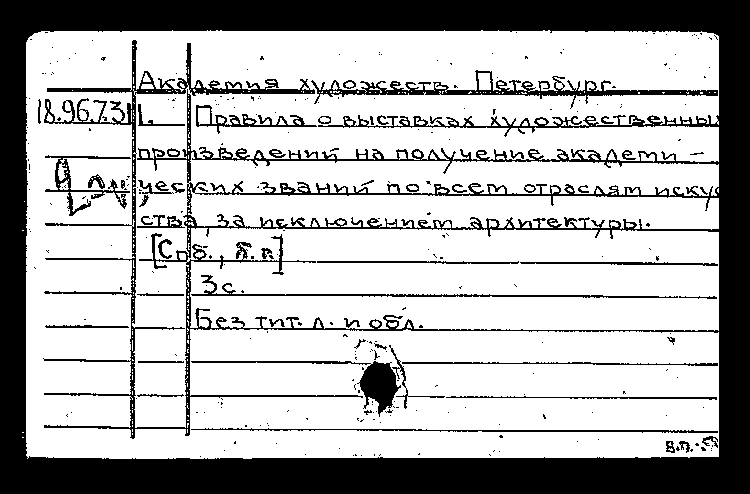 Академия художеств. Петербург.
18.96.7.31 1. Правила о выставках художественны
произведений на получение академи –
ческих званий по всем отраслям искус
ства, за исключением архитектуры.
[Спб., б. г.]
3 с.
Без тит. л. и обл.